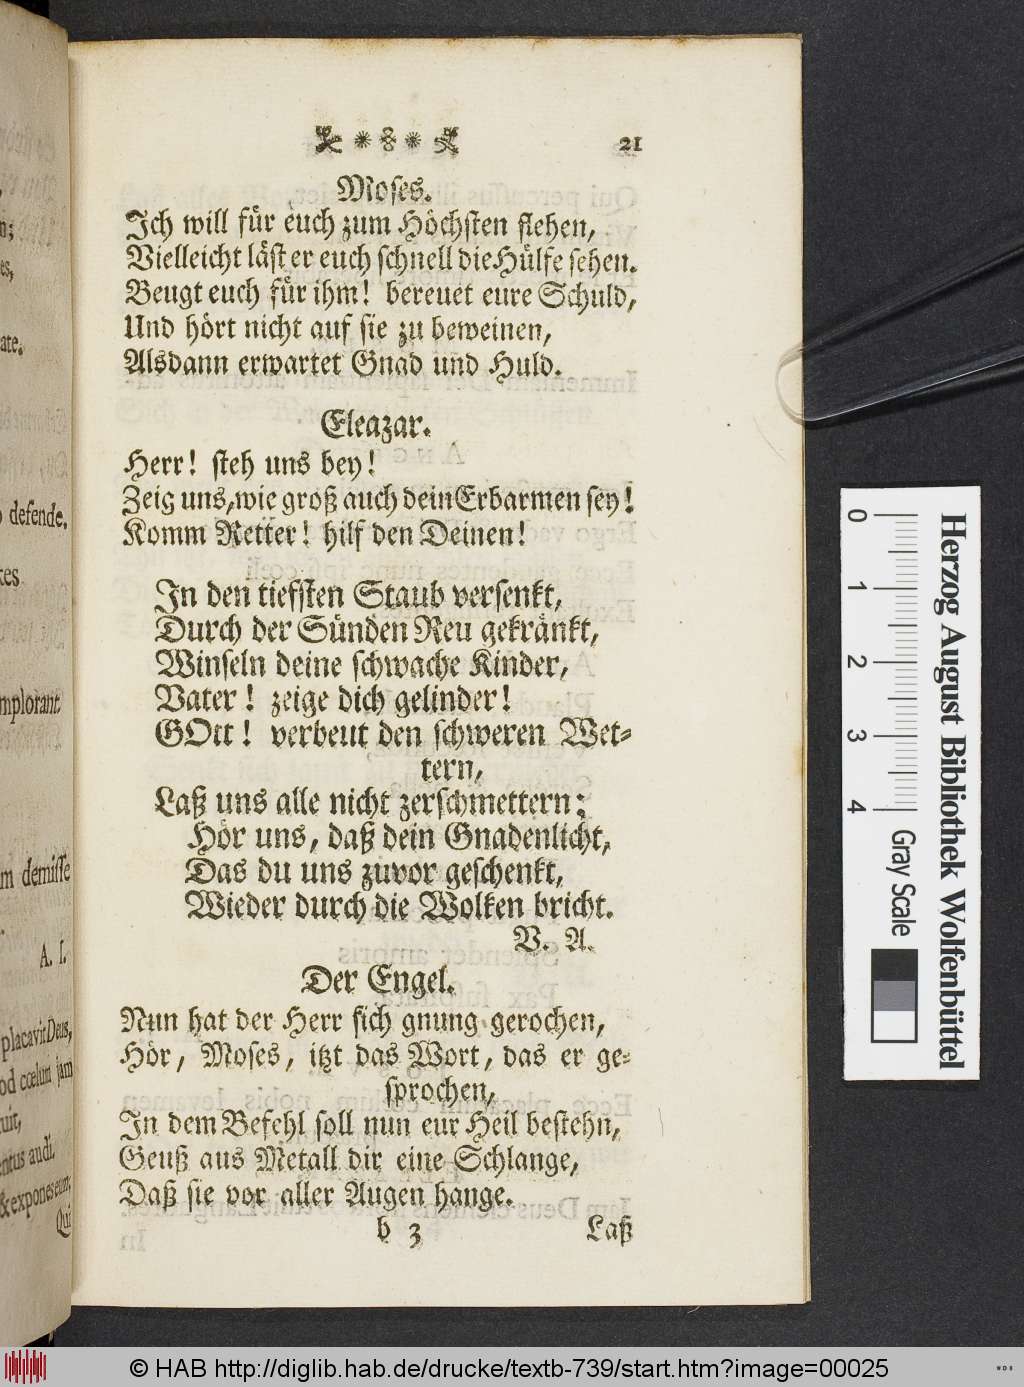 21
Moses.
Ich will für euch zum Höchsten flehen,
Vielleicht läst er euch schnell die Hülfe sehen.
Beugt euch für ihm! bereuet eure Schuld,
Und hört nicht auf sie zu beweinen,
Alsdann erwartet Gnad und Huld.
Eleazar.
Herr! steh uns bey!
Zeig uns, wie groß auch dein Erbarmen sey!
Komm Retter! hilf den Deinen!
In den tiefsten Staub versenkt,
Durch der Sünden Reu gekränkt,
Winseln deine schwache Kinder,
Vater! zeige dich gelinder!
GOtt! verbeut den schweren Wet-
tern,
Laß uns alle nicht zerschmettern;
Hör uns, daß dein Gnadenlicht,
Das du uns zuvor geschenkt,
Wieder durch die Wolken bricht.
V. A.
Der Engel.
Nun hat der Herr sich gnung gerochen,
Hör, Moses, itzt das Wort, das er ge-
sprochen,
In dem Befehl soll nun eur Heil bestehn,
Geuß aus Metall dir eine Schlange,
Daß sie vor aller Augen hange.
b 3 Laß
ate.
defende.
mplorant
m demisse
A. I.
placavit Deus,
cœlum jam
audi.
& exponeseum,
Qui
0 1 2 3 4
Gray Scale
Herzog August Bibliothek Wolfenbüttel
© HAB http://diglib.hab.de/drucke/textb-739/start.htm?image=00025